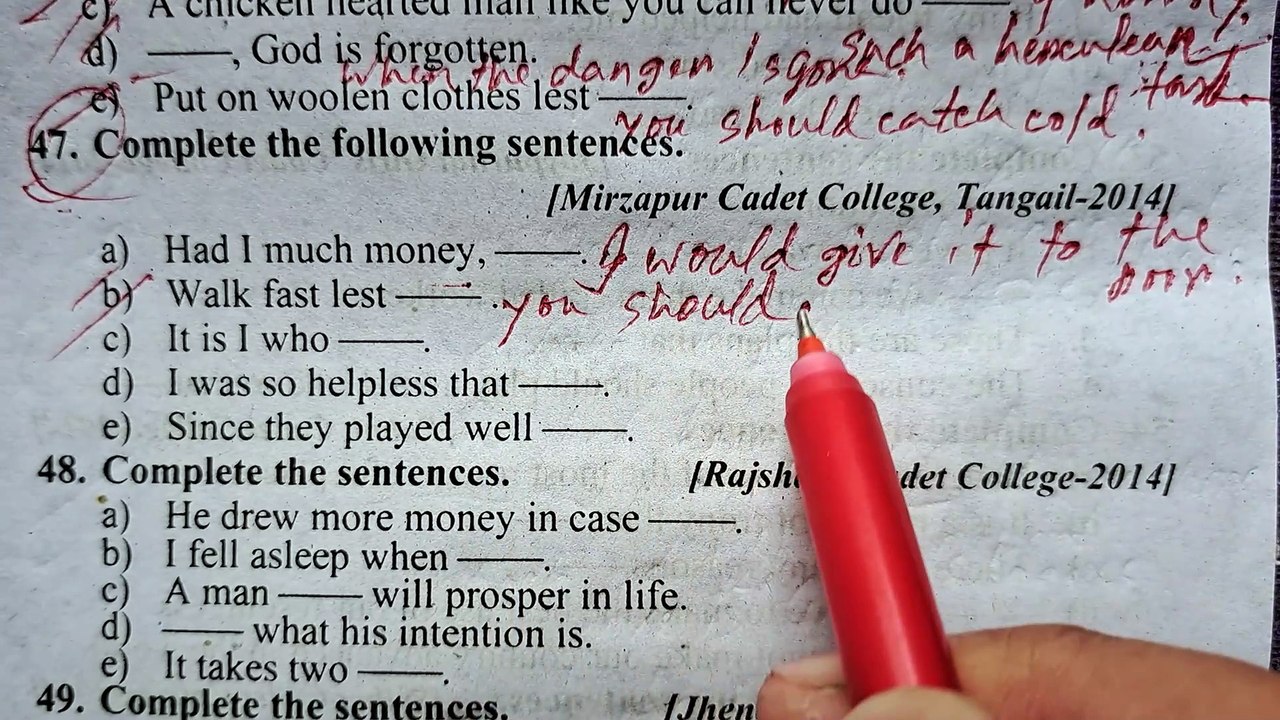 c) A chicken hearted man like you can never do ———.
d) ———, God is forgotten. such a herculean
When the danger is gone task.
e) Put on woolen clothes lest ———. you should catch cold.
47. Complete the following sentences.
[Mirzapur Cadet College, Tangail-2014]
a) Had I much money, ———. I would give it to the poor.
b) Walk fast lest ———. you should
c) It is I who ———.
d) I was so helpless that ———.
e) Since they played well ———.
48. Complete the sentences. [Rajsh det College-2014]
a) He drew more money in case ———.
b) I fell asleep when ———.
c) A man ——— will prosper in life.
d) ——— what his intention is.
e) It takes two ———.
49. Complete the sentences. [Jhen